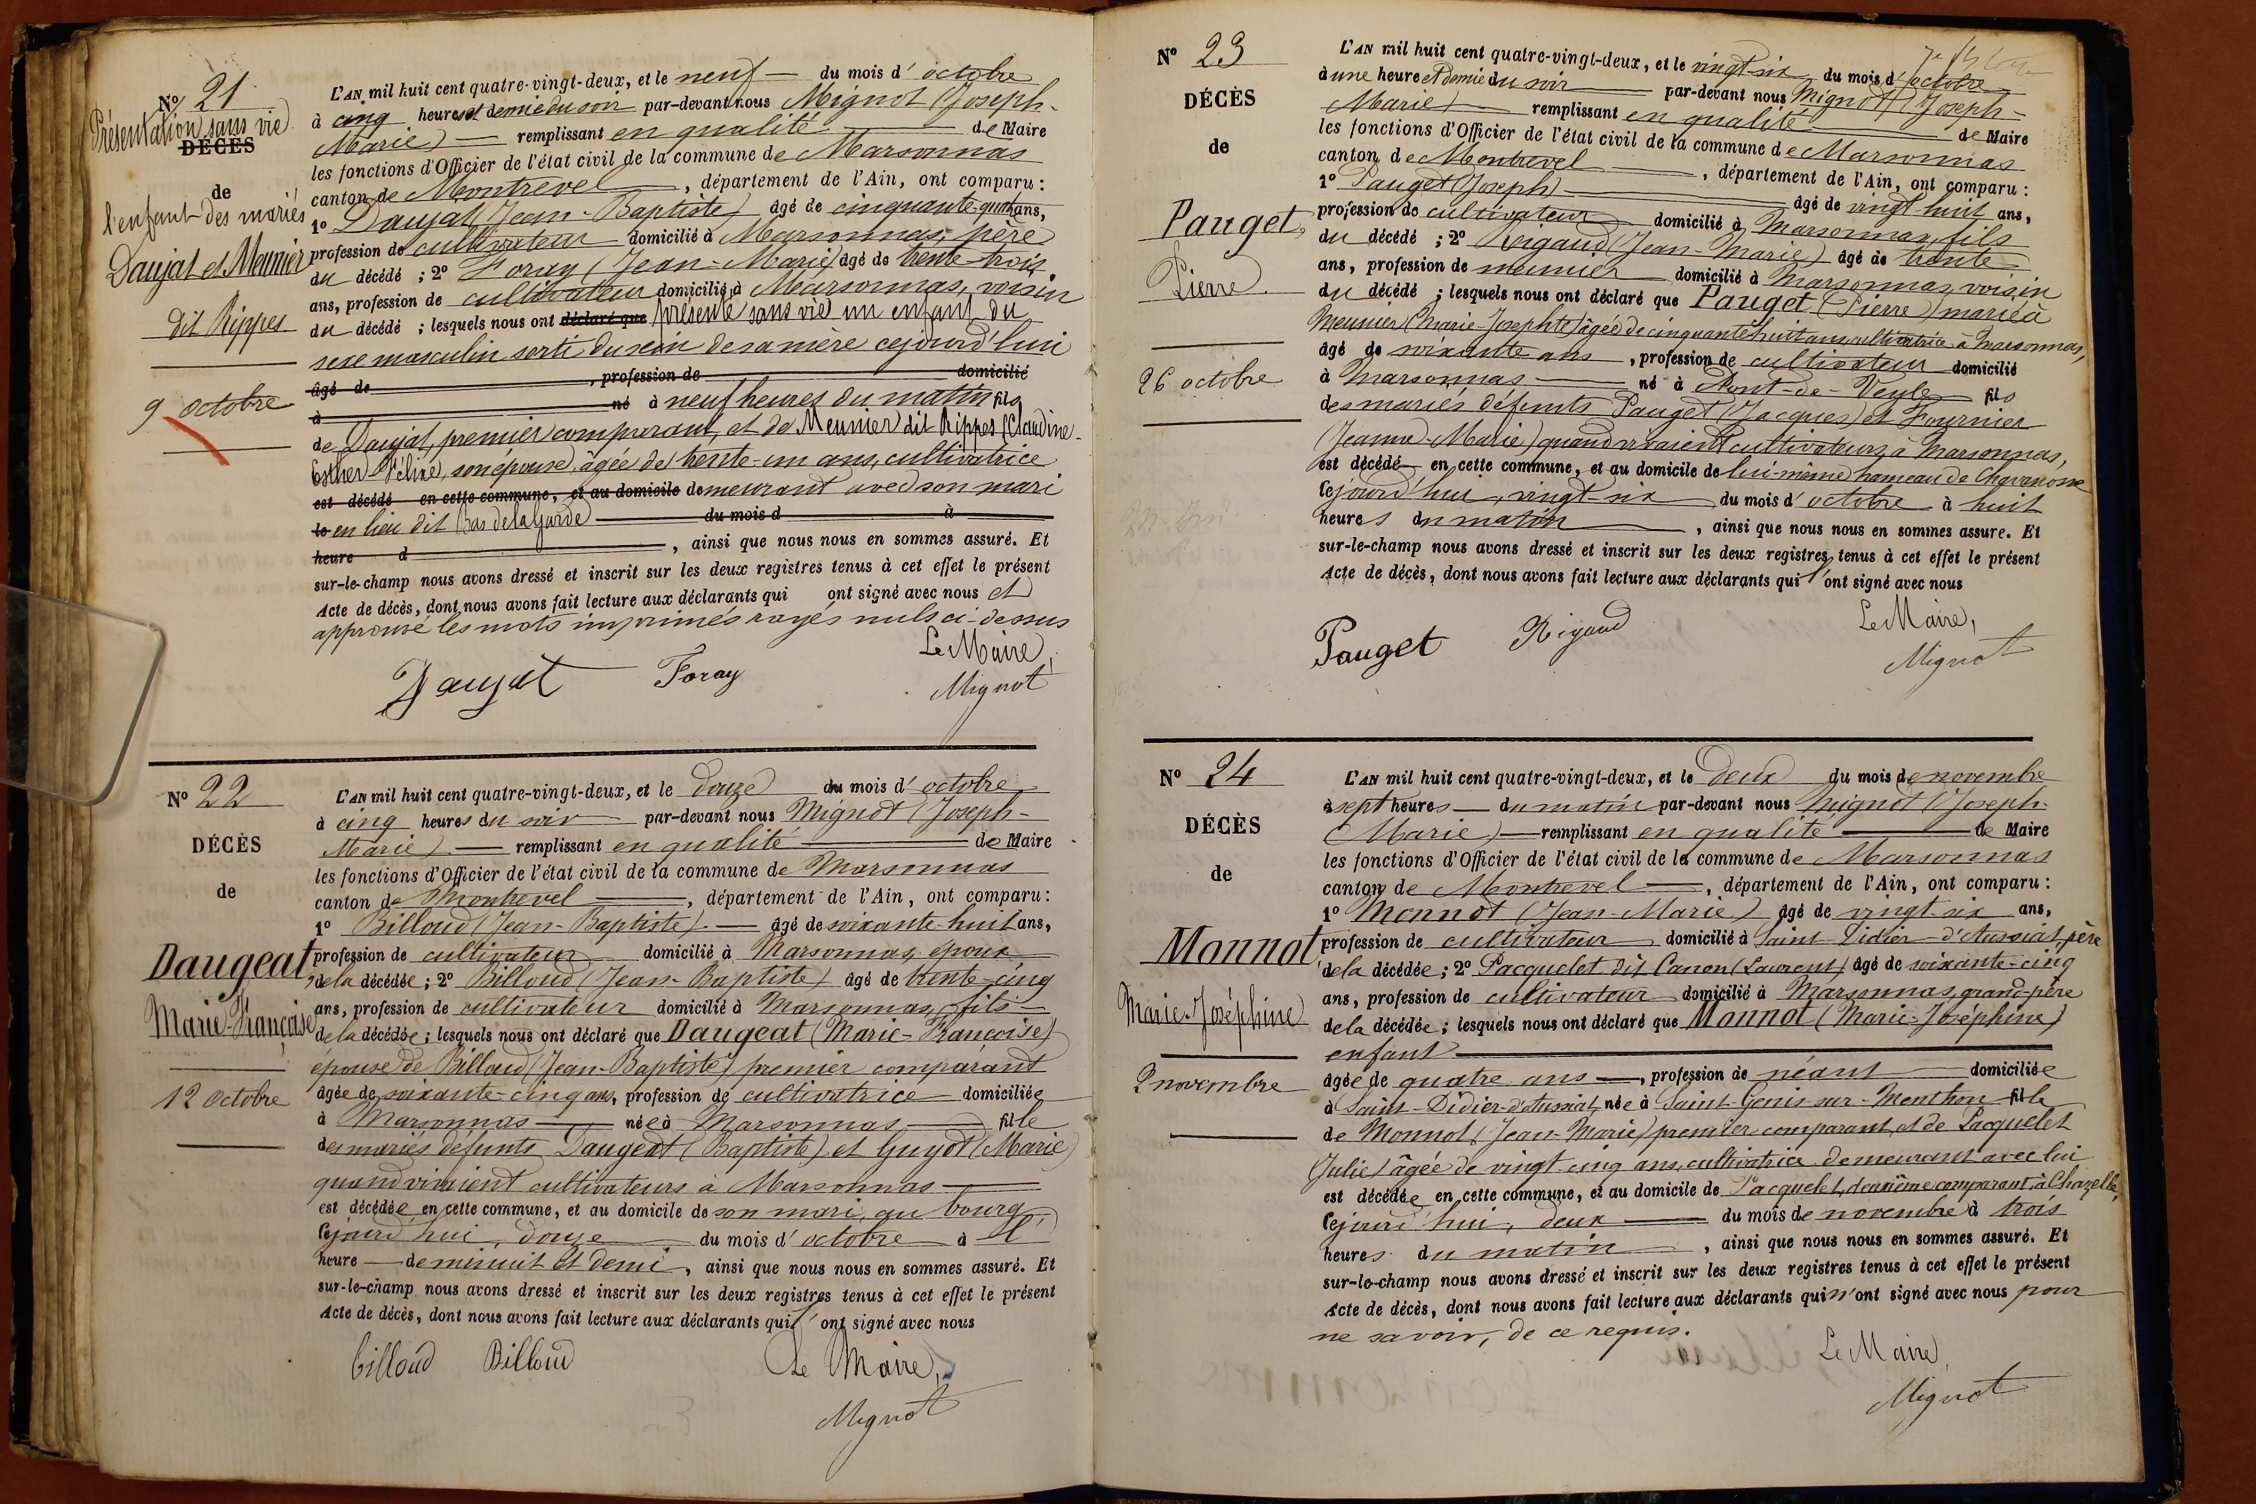 No 21
Présentation sans vie
DÉCÈS
de
l'enfant des mariés
Daujat et Meunier
dit Rippes
9 octobre
L'AN mil huit cent quatre-vingt-deux, et le neuf du mois d'octobre
à cinq heures et demie du soir par-devant nous Mignot (Joseph-
Marie) remplissant en qualité de Maire
les fonctions d'Officier de l'état civil de la commune de Marsonnas
canton de Montrevel, département de l'Ain, ont comparu :
1° Daujat (Jean-Baptiste) âgé de cinquante-quatre ans,
profession de cultivateur domicilié à Marsonnas, père
du décédé ; 2° Foray (Jean-Marie) âgé de trente-trois
ans, profession de cultivateur domicilié à Marsonnas, voisin
du décédé ; lesquels nous ont déclaré que présenté sans vie un enfant du
sexe masculin sorti du sein de sa mère cejourd'hui
âgé de , profession de domicilié
à né à neuf heures du matin fils
de Daujat, premier comparant, et de Meunier dit Rippes (Claudine-
Esther-Féline, son épouse, âgée de trente-un ans, cultivatrice
est décédé en cette commune, et au domicile de demeurant avec son mari
le en lieu dit Bas de la Garde du mois d à
heure d , ainsi que nous nous en sommes assuré. Et
sur-le-champ nous avons dressé et inscrit sur les deux registres tenus à cet effet le présent
Acte de décès, dont nous avons fait lecture aux déclarants qui ont signé avec nous et
approuvé les mots imprimés rayés nuls ci-dessus
Le Maire,
Daujat Foray Mignot
No 22
DÉCÈS
de
Daugeat,
Marie-Françoise
12 octobre
L'AN mil huit cent quatre-vingt-deux, et le douze du mois d'octobre
à cinq heures du soir par-devant nous Mignot (Joseph-
Marie) remplissant en qualité de Maire
les fonctions d'Officier de l'état civil de la commune de Marsonnas
canton de Montrevel, département de l'Ain, ont comparu :
1° Billoud (Jean-Baptiste) âgé de soixante-huit ans,
profession de cultivateur domicilié à Marsonnas, époux
de la décédée ; 2° Billoud (Jean-Baptiste) âgé de trente-cinq
ans, profession de cultivateur domicilié à Marsonnas, fils
de la décédée ; lesquels nous ont déclaré que Daugeat (Marie-Françoise)
épouse de Billoud (Jean-Baptiste) premier comparant
âgée de soixante-cinq ans, profession de cultivatrice domiciliée
à Marsonnas née à Marsonnas fille
des mariés défunts Daugeat (Baptiste) et Guyot (Marie)
quand vivaient cultivateurs à Marsonnas
est décédée en cette commune, et au domicile de son mari, au bourg
Cejourd'hui, douze du mois d'octobre à l'
heure de minuit et demi, ainsi que nous nous en sommes assuré. Et
sur-le-champ nous avons dressé et inscrit sur les deux registres tenus à cet effet le présent
Acte de décès, dont nous avons fait lecture aux déclarants qui l'ont signé avec nous
billoud Billoud Le Maire,
Mignot
No 23
DÉCÈS
de
Pauget,
Pierre
26 octobre
L'AN mil huit cent quatre-vingt-deux, et le vingt-six du mois d'octobre
à une heure et demie du soir par-devant nous Mignot (Joseph-
Marie) remplissant en qualité de Maire
les fonctions d'Officier de l'état civil de la commune de Marsonnas
canton de Montrevel, département de l'Ain, ont comparu :
1° Pauget (Joseph) âgé de vingt-huit ans,
profession de cultivateur domicilié à Marsonnas, fils
du décédé ; 2° Rigaud (Jean-Marie) âgé de trente
ans, profession de meunier domicilié à Marsonnas, voisin
du décédé ; lesquels nous ont déclaré que Pauget (Pierre) marié à
Meunier (Marie-Josephte) âgée de cinquante huit ans, cultivatrice à Marsonnas,
âgé de soixante ans, profession de cultivateur domicilié
à Marsonnas né à Pont-de-Veyle fils
des mariés défunts Pauget (Jacques) et Fournier
(Jeanne-Marie) quand vivaient cultivateurs à Marsonnas,
est décédé en cette commune, et au domicile de lui-même hameau de Chavanosse
Cejourd'hui, vingt-six du mois d'octobre à huit
heures du matin, ainsi que nous nous en sommes assuré. Et
sur-le-champ nous avons dressé et inscrit sur les deux registres tenus à cet effet le présent
Acte de décès, dont nous avons fait lecture aux déclarants qui l'ont signé avec nous
Pauget Rigaud Le Maire,
Mignot
No 24
DÉCÈS
de
Monnot,
Marie-Joséphine
2 novembre
L'AN mil huit cent quatre-vingt-deux, et le deux du mois de novembre
à sept heures du matin par-devant nous Mignot (Joseph-
Marie) remplissant en qualité de Maire
les fonctions d'Officier de l'état civil de la commune de Marsonnas
canton de Montrevel, département de l'Ain, ont comparu :
1° Monnot (Jean-Marie) âgé de vingt-six ans,
profession de cultivateur domicilié à Saint-Didier-d'Aussiat, père
de la décédée ; 2° Pacquelet dit Canon (Laurent) âgé de soixante-cinq
ans, profession de cultivateur domicilié à Marsonnas, grand-père
de la décédée ; lesquels nous ont déclaré que Monnot (Marie-Joséphine)
enfant
âgée de quatre ans, profession de néant domiciliée
à Saint-Didier-d'Aussiat, née à Saint-Genis-sur-Menthon fille
de Monnot (Jean-Marie) premier comparant, et de Pacquelet
(Julie) âgée de vingt-cinq ans, cultivatrice demeurant avec lui
est décédée en cette commune, et au domicile de Pacquelet, deuxième comparant, à Chazelle,
Cejourd'hui, deux du mois de novembre à trois
heures du matin, ainsi que nous nous en sommes assuré. Et
sur-le-champ nous avons dressé et inscrit sur les deux registres tenus à cet effet le présent
Acte de décès, dont nous avons fait lecture aux déclarants qui n'ont signé avec nous pour
ne savoir, de ce requis.
Le Maire,
Mignot